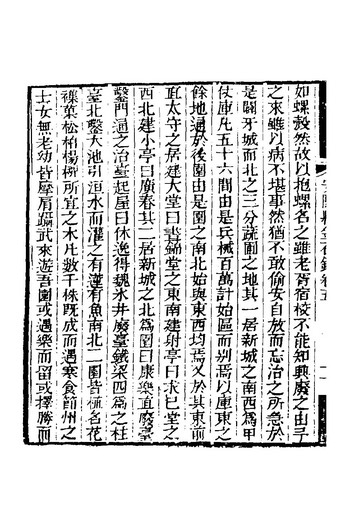 如螺殼然故以抱螺名之雖老胥宿校不能知興廢之由予
之來雖以病不堪事然猶不敢偷安自放而忘治之所急於
是闢牙城而北之三分蔬圃之地其一居新城之南西為甲
仗庫凡五十六間由是兵械百萬計始區而别焉以庫東之
餘地通於後園由是園之南北始與東西均焉又於其東前
直太守之居建大堂曰晝錦堂之東南建射亭曰求已堂之
西北建小亭曰廣春其二居新城之北為園曰康樂直廢臺
鑿門通之治臺起屋曰休逸得魏氷井廢臺鐵梁四為之柱
臺北鑿大池引洹水而灌之有蓮有魚南北二園皆植名花
雜菓松柏楊柳所宜之木凡數千株既成而遇寒食節州之
士女無老幼皆摩肩躡武來遊吾園或遇樂而留或擇勝而
安陽縣金石錄卷五